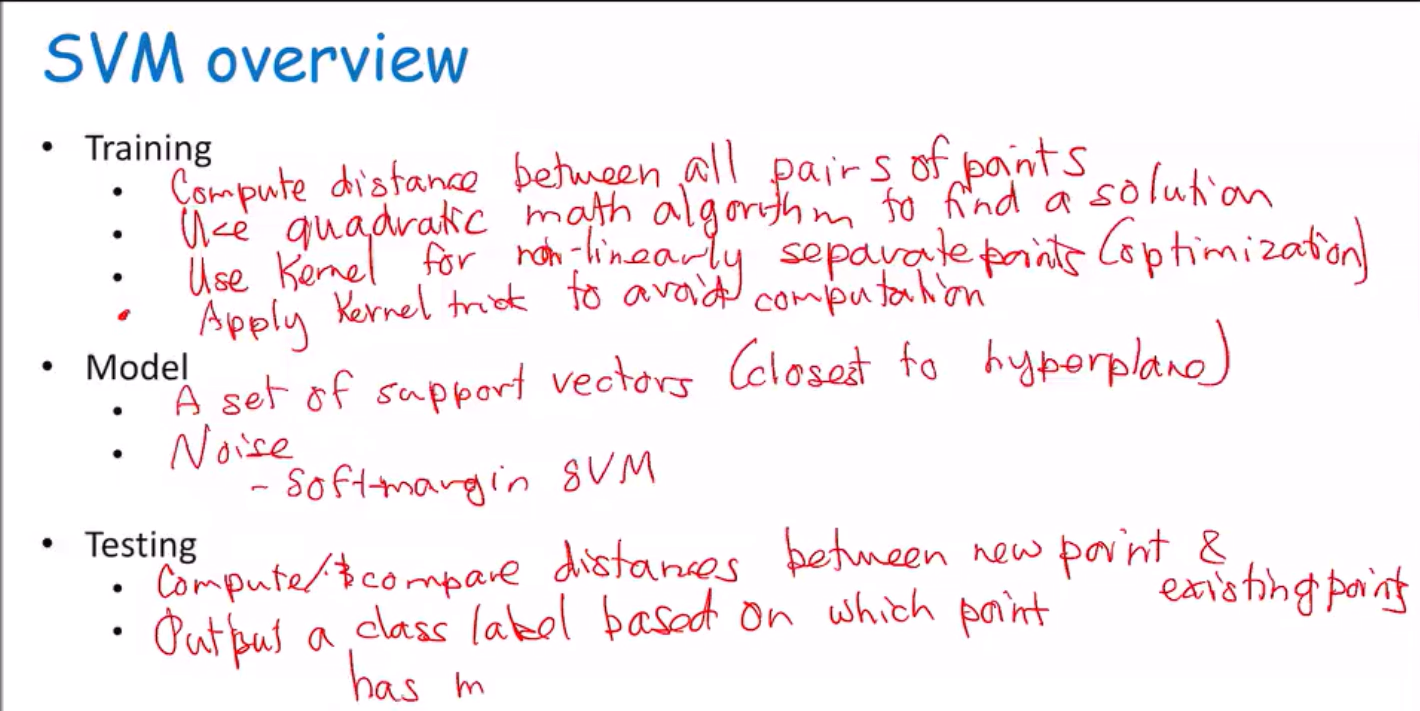 SVM overview
• Training
• Compute distance between all pairs of points
• Use quadratic math algorithm to find a solution
• Use Kernel for non-linearly separate points (optimization)
• Apply Kernel trick to avoid computation
• Model
• A set of support vectors (closest to hyperplane)
• Noise
- Soft-margin SVM
• Testing
• Compute/&compare distances between new point &
existing points
• Output a class label based on which point
has m